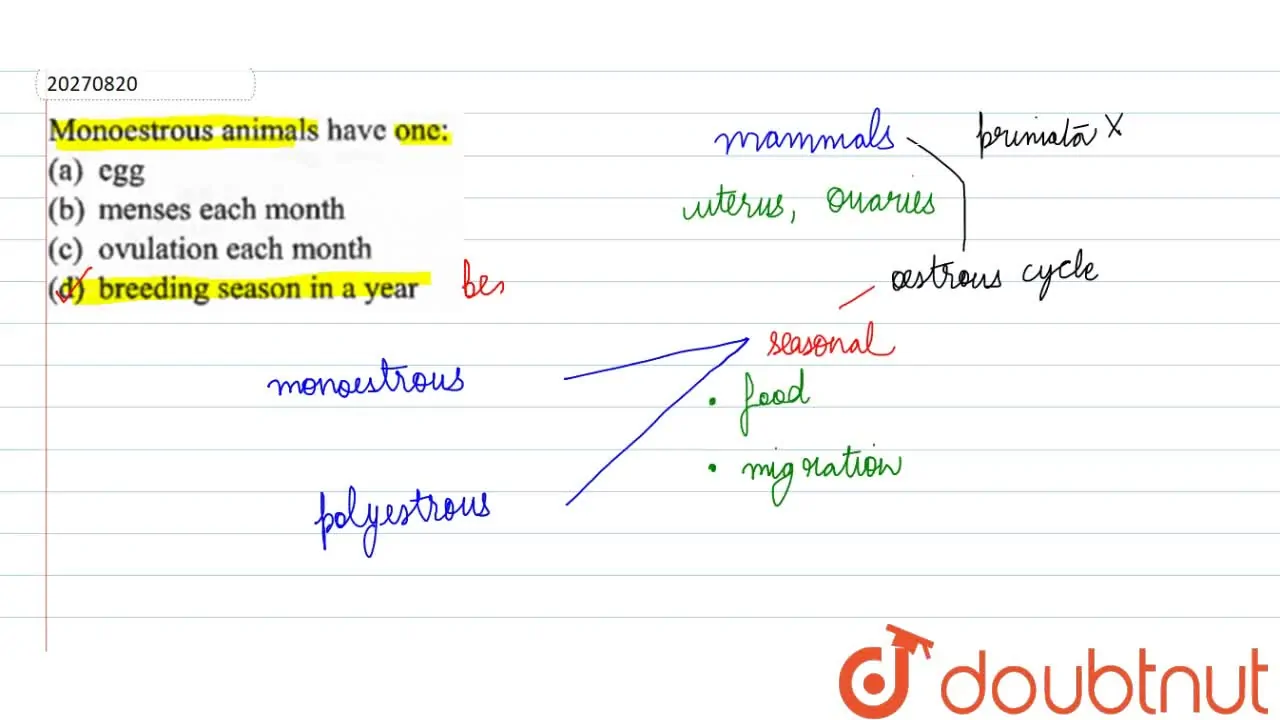 20270820
Monoestrous animals have one:
(a) egg
(b) menses each month
(c) ovulation each month
(d) breeding season in a year
bes
mammals
primatā X
uterus, ovaries
oestrous cycle
seasonal
• food
• migration
monoestrous
polyestrous
doubtnut